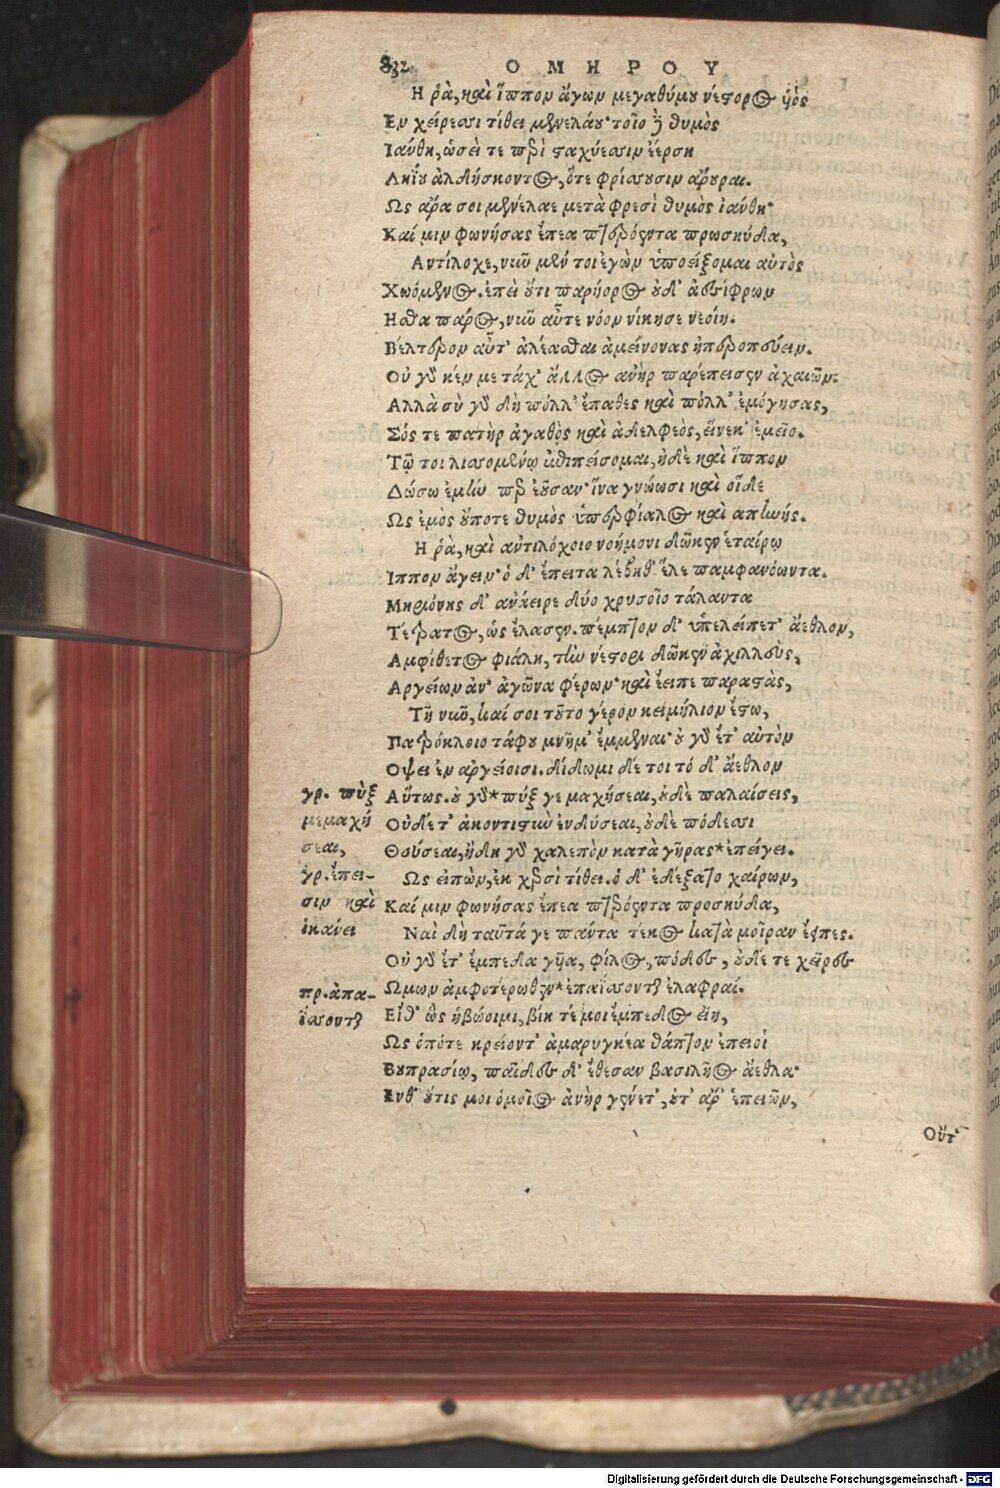 832 ΟΜΗΡΟΥ
Η ῥὰ, καὶ ἵππον ἄγων μεγαθύμου νέστορος ὑὸς
Εν χείρεσσι τίθει μενελάου· τοῖο δὲ θυμὸς
Ιάνθη, ὡσεί τε περὶ σταχύεσσιν ἐέρση
Ληΐου ἀλδήσκοντος, ὅτε φρίσσουσιν ἄρουραι.
Ως ἄρα σοι μενέλαε μετὰ φρεσὶ θυμὸς ἰάνθη·
Καί μιν φωνήσας ἔπεα πτερόεντα πρωσηύδα,
Αντίλοχε, νῦν μέν τοι ἐγὼν ὑποείξομαι αὐτὸς
Χωόμενος. ἐπεὶ οὔτι παρήορος οὐδ' ἀεσίφρων
Ησθα πάρος, νῦν αὖτε νόον νίκησε νεοίη.
Βέλτερον αὖτ' ἀλέασθαι ἀμείνονας ἠπεροπεύειν.
Οὐ γάρ κέν με τάχ' ἄλλος ἀνὴρ παρέπεισεν ἀχαιῶν·
Αλλὰ σὺ γὰρ δὴ πόλλ' ἔπαθες καὶ πόλλ' ἐμόγησας,
Σός τε πατὴρ ἀγαθὸς καὶ ἀδελφεὸς, εἵνεκ' ἐμεῖο.
Τῷ τοι λισσομένῳ ἐπιπείσομαι, ἠδὲ καὶ ἵππον
Δώσω ἐμήν περ ἐοῦσαν· ἵνα γνώωσι καὶ οἵδε
Ως ἐμὸς οὔποτε θυμὸς ὑπερφίαλος καὶ ἀπηνής.
Η ῥὰ, καὶ αὐτιλόχοιο νοήμονι δῶκεν ἑταίρῳ
Ιππον ἄγειν· ὁ δ' ἔπειτα λέβηθ' ἕλε παμφανόωντα.
Μηριόνης δ' ἀνάειρε δύο χρυσοῖο τάλαντα
Τέτρατος, ὡς ἔλασεν. πέμπτον δ' ὑπελείπετ' ἄεθλον,
Αμφίθετος φιάλη, τὴν νέστορι δῶκεν ἀχιλλεὺς,
Αργείων ἀν' ἀγῶνα φέρων· καὶ ἔειπε παραστὰς,
Τῆ νῦν, καί σοι τοῦτο γέρον κειμήλιον ἔστω,
Πατρόκλοιο τάφου μνῆμ' ἔμμεναι· οὐ γὰρ ἔτ' αὐτὸν
Οψει ἐν ἀργείοισι. δίδωμι δέ τοι τό δ' ἄεθλον
γρ. πὺξ Αὔτως. οὐ γὰρ* πύξ γε μαχήσεαι, οὐδὲ παλαίσεις,
μεμαχή Οὐδέ τ' ἀκοντιστὺν ἐνδύσεαι, οὐδὲ πόδεσσι
σεαι, Θεύσεαι, ἤδη γὰρ χαλεπὸν κατὰ γῆρας* ἐπείγει.
γρ. ἔπει- Ως εἰπὼν, ἐν χερσὶ τίθει. ὁ δ' ἐδέξατο χαίρων,
σιν καὶ Καί μιν φωνήσας ἔπεα πτερόεντα προσηύδα,
ἱκάνει Ναὶ δὴ ταῦτά γε πάντα τέκος κατὰ μοῖραν ἔειπες.
Οὐ γὰρ ἔτ' ἔμπεδα γυῖα, φίλος, πόδες, οὐδέ τε χεῖρες
πρ. ἀπα- Ωμων ἀμφοτέρωθεν* ἐπαΐσσονται ἐλαφραί.
ΐσσονται Εἴθ' ὣς ἡβώοιμι, βίη τέ μοι ἔμπεδος εἴη,
Ως ὁπότε κρείοντ' ἀμαρυγκέα θάπτον ἐπειοὶ
Βουπρασίῳ, παῖδες δ' ἔθεσαν βασιλῆος ἄεθλα·
Ενθ' οὔτις μοι ὁμοῖος ἀνὴρ γένετ', οὔτ' ἄρ' ἐπειῶν,
Οὔτ'
Digitalisierung gefördert durch die Deutsche Forschungsgemeinschaft - DFG